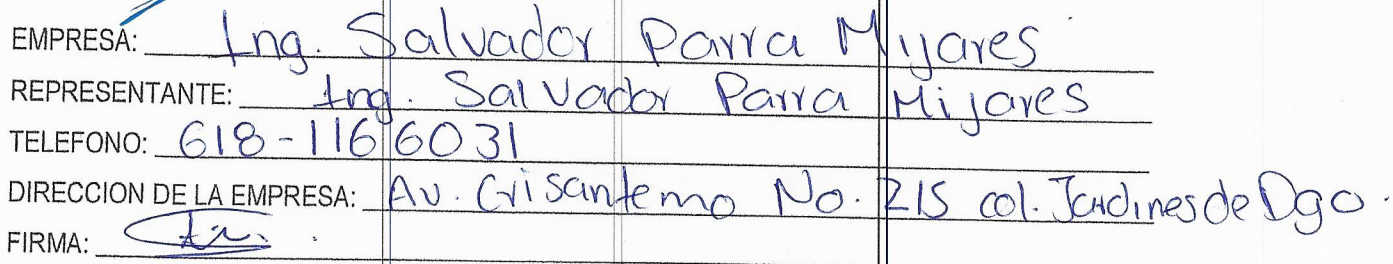 EMPRESA: Ing. Salvador Parra Mijares
REPRESENTANTE: Ing. Salvador Parra Mijares
TELEFONO: 618-116 6031
DIRECCION DE LA EMPRESA: Av. Crisantemo No. 215 col. Jardines de Dgo.
FIRMA: